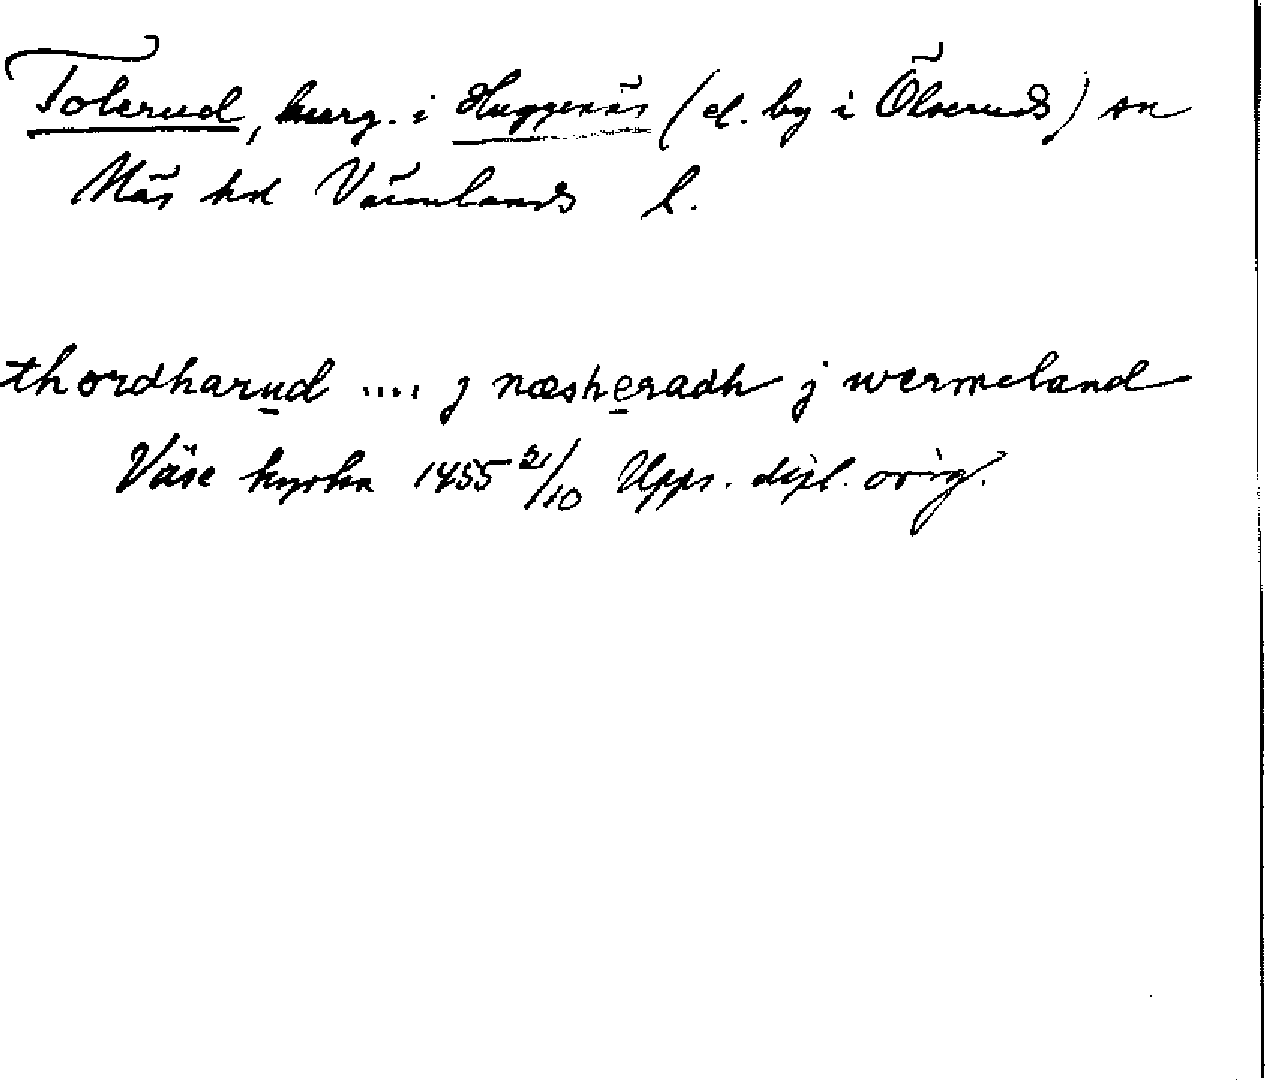 Tolerud, herg. i Huggenäs (el. by i Ölseruds) sn
Näs hd Värmlands l.
thordharud .... j næsheradh j wermeland
Väse kyrka 1455 2/10 Upps. dipl. orig.